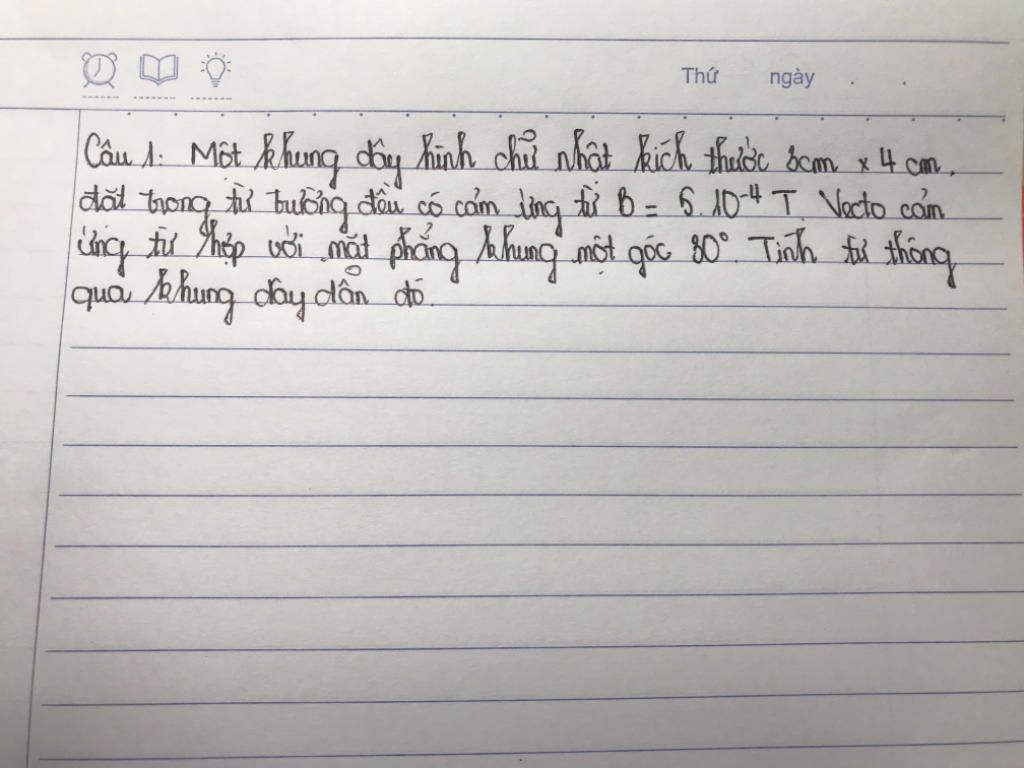 Thứ ngày . .
Câu 1: Một khung dây hình chữ nhật kích thước 3cm x 4 cm.
đặt trong từ trường đều có cảm ứng từ B = 5.10⁻⁴ T. Vecto cảm
ứng từ hợp với mặt phẳng khung một góc 30°. Tính từ thông
qua khung dây dẫn đó.